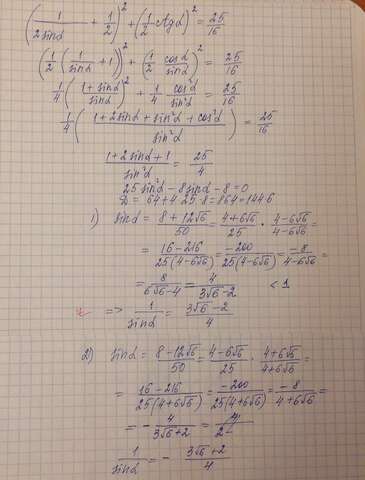 (1/(2sinα) + 1/2)² + (1/2 ctgα)² = 25/16
(1/2 (1/sinα + 1))² + (1/2 cosα/sinα)² = 25/16
1/4 ((1+sinα)/sinα)² + 1/4 cos²α/sin²α = 25/16
1/4 ((1+2sinα+sin²α+cos²α)/sin²α) = 25/16
(1+2sinα+1)/sin²α = 25/4
25sin²α − 8sinα − 8 = 0
D = 64+4·25·8 = 864 = 144·6
1) sinα = (8+12√6)/50 = (4+6√6)/25 · (4−6√6)/(4−6√6) =
= (16−216)/(25(4−6√6)) = −200/(25(4−6√6)) = −8/(4−6√6) =
= 8/(6√6−4) = 4/(3√6−2) < 1
=> 1/sinα = (3√6−2)/4
2) sinα = (8−12√6)/50 = (4−6√6)/25 · (4+6√6)/(4+6√6) =
= (16−216)/(25(4+6√6)) = −200/(25(4+6√6)) = −8/(4+6√6) =
= −4/(3√6+2) = 4/2−
1/sinα = −(3√6+2)/4